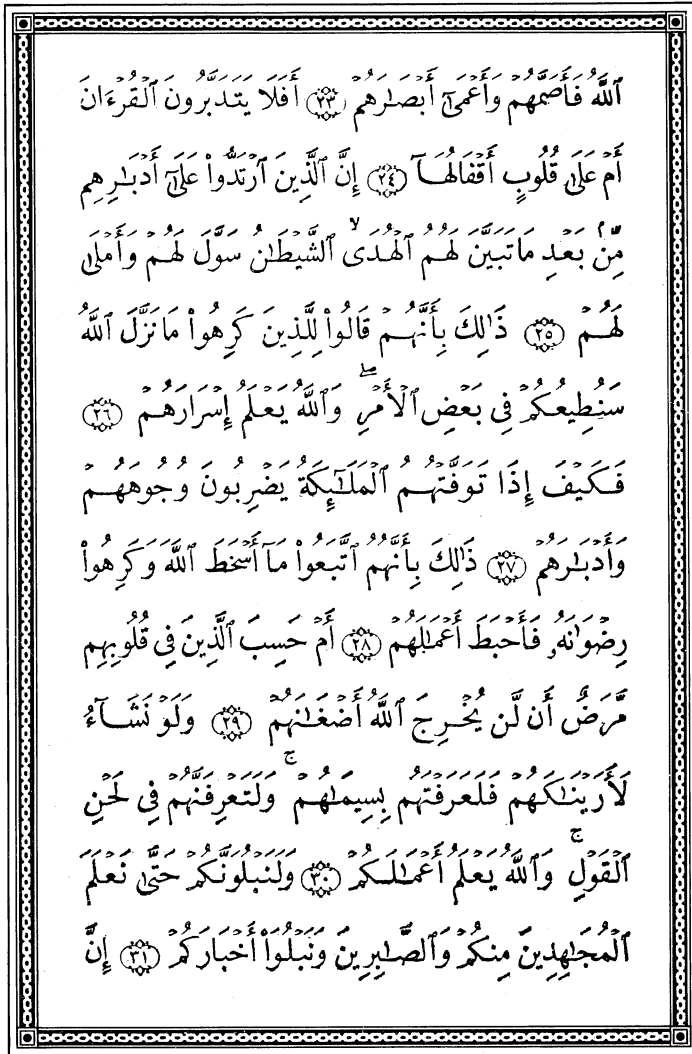 ٱللَّهُ فَأَصَمَّهُمْ وَأَعْمَىٰٓ أَبْصَـٰرَهُمْ ٢٣ أَفَلَا يَتَدَبَّرُونَ ٱلْقُرْءَانَ
أَمْ عَلَىٰ قُلُوبٍ أَقْفَالُهَآ ٢٤ إِنَّ ٱلَّذِينَ ٱرْتَدُّوا۟ عَلَىٰٓ أَدْبَـٰرِهِم
مِّنۢ بَعْدِ مَا تَبَيَّنَ لَهُمُ ٱلْهُدَىۙ ٱلشَّيْطَـٰنُ سَوَّلَ لَهُمْ وَأَمْلَىٰ
لَهُمْ ٢٥ ذَٰلِكَ بِأَنَّهُمْ قَالُوا۟ لِلَّذِينَ كَرِهُوا۟ مَا نَزَّلَ ٱللَّهُ
سَنُطِيعُكُمْ فِى بَعْضِ ٱلْأَمْرِۖ وَٱللَّهُ يَعْلَمُ إِسْرَارَهُمْ ٢٦
فَكَيْفَ إِذَا تَوَفَّتْهُمُ ٱلْمَلَـٰٓئِكَةُ يَضْرِبُونَ وُجُوهَهُمْ
وَأَدْبَـٰرَهُمْ ٢٧ ذَٰلِكَ بِأَنَّهُمُ ٱتَّبَعُوا۟ مَآ أَسْخَطَ ٱللَّهَ وَكَرِهُوا۟
رِضْوَٰنَهُۥ فَأَحْبَطَ أَعْمَـٰلَهُمْ ٢٨ أَمْ حَسِبَ ٱلَّذِينَ فِى قُلُوبِهِم
مَّرَضٌ أَن لَّن يُخْرِجَ ٱللَّهُ أَضْغَـٰنَهُمْ ٢٩ وَلَوْ نَشَآءُ
لَأَرَيْنَـٰكَهُمْ فَلَعَرَفْتَهُم بِسِيمَـٰهُمْۚ وَلَتَعْرِفَنَّهُمْ فِى لَحْنِ
ٱلْقَوْلِۚ وَٱللَّهُ يَعْلَمُ أَعْمَـٰلَكُمْ ٣٠ وَلَنَبْلُوَنَّكُمْ حَتَّىٰ نَعْلَمَ
ٱلْمُجَـٰهِدِينَ مِنكُمْ وَٱلصَّـٰبِرِينَ وَنَبْلُوَا۟ أَخْبَارَكُمْ ٣١ إِنَّ